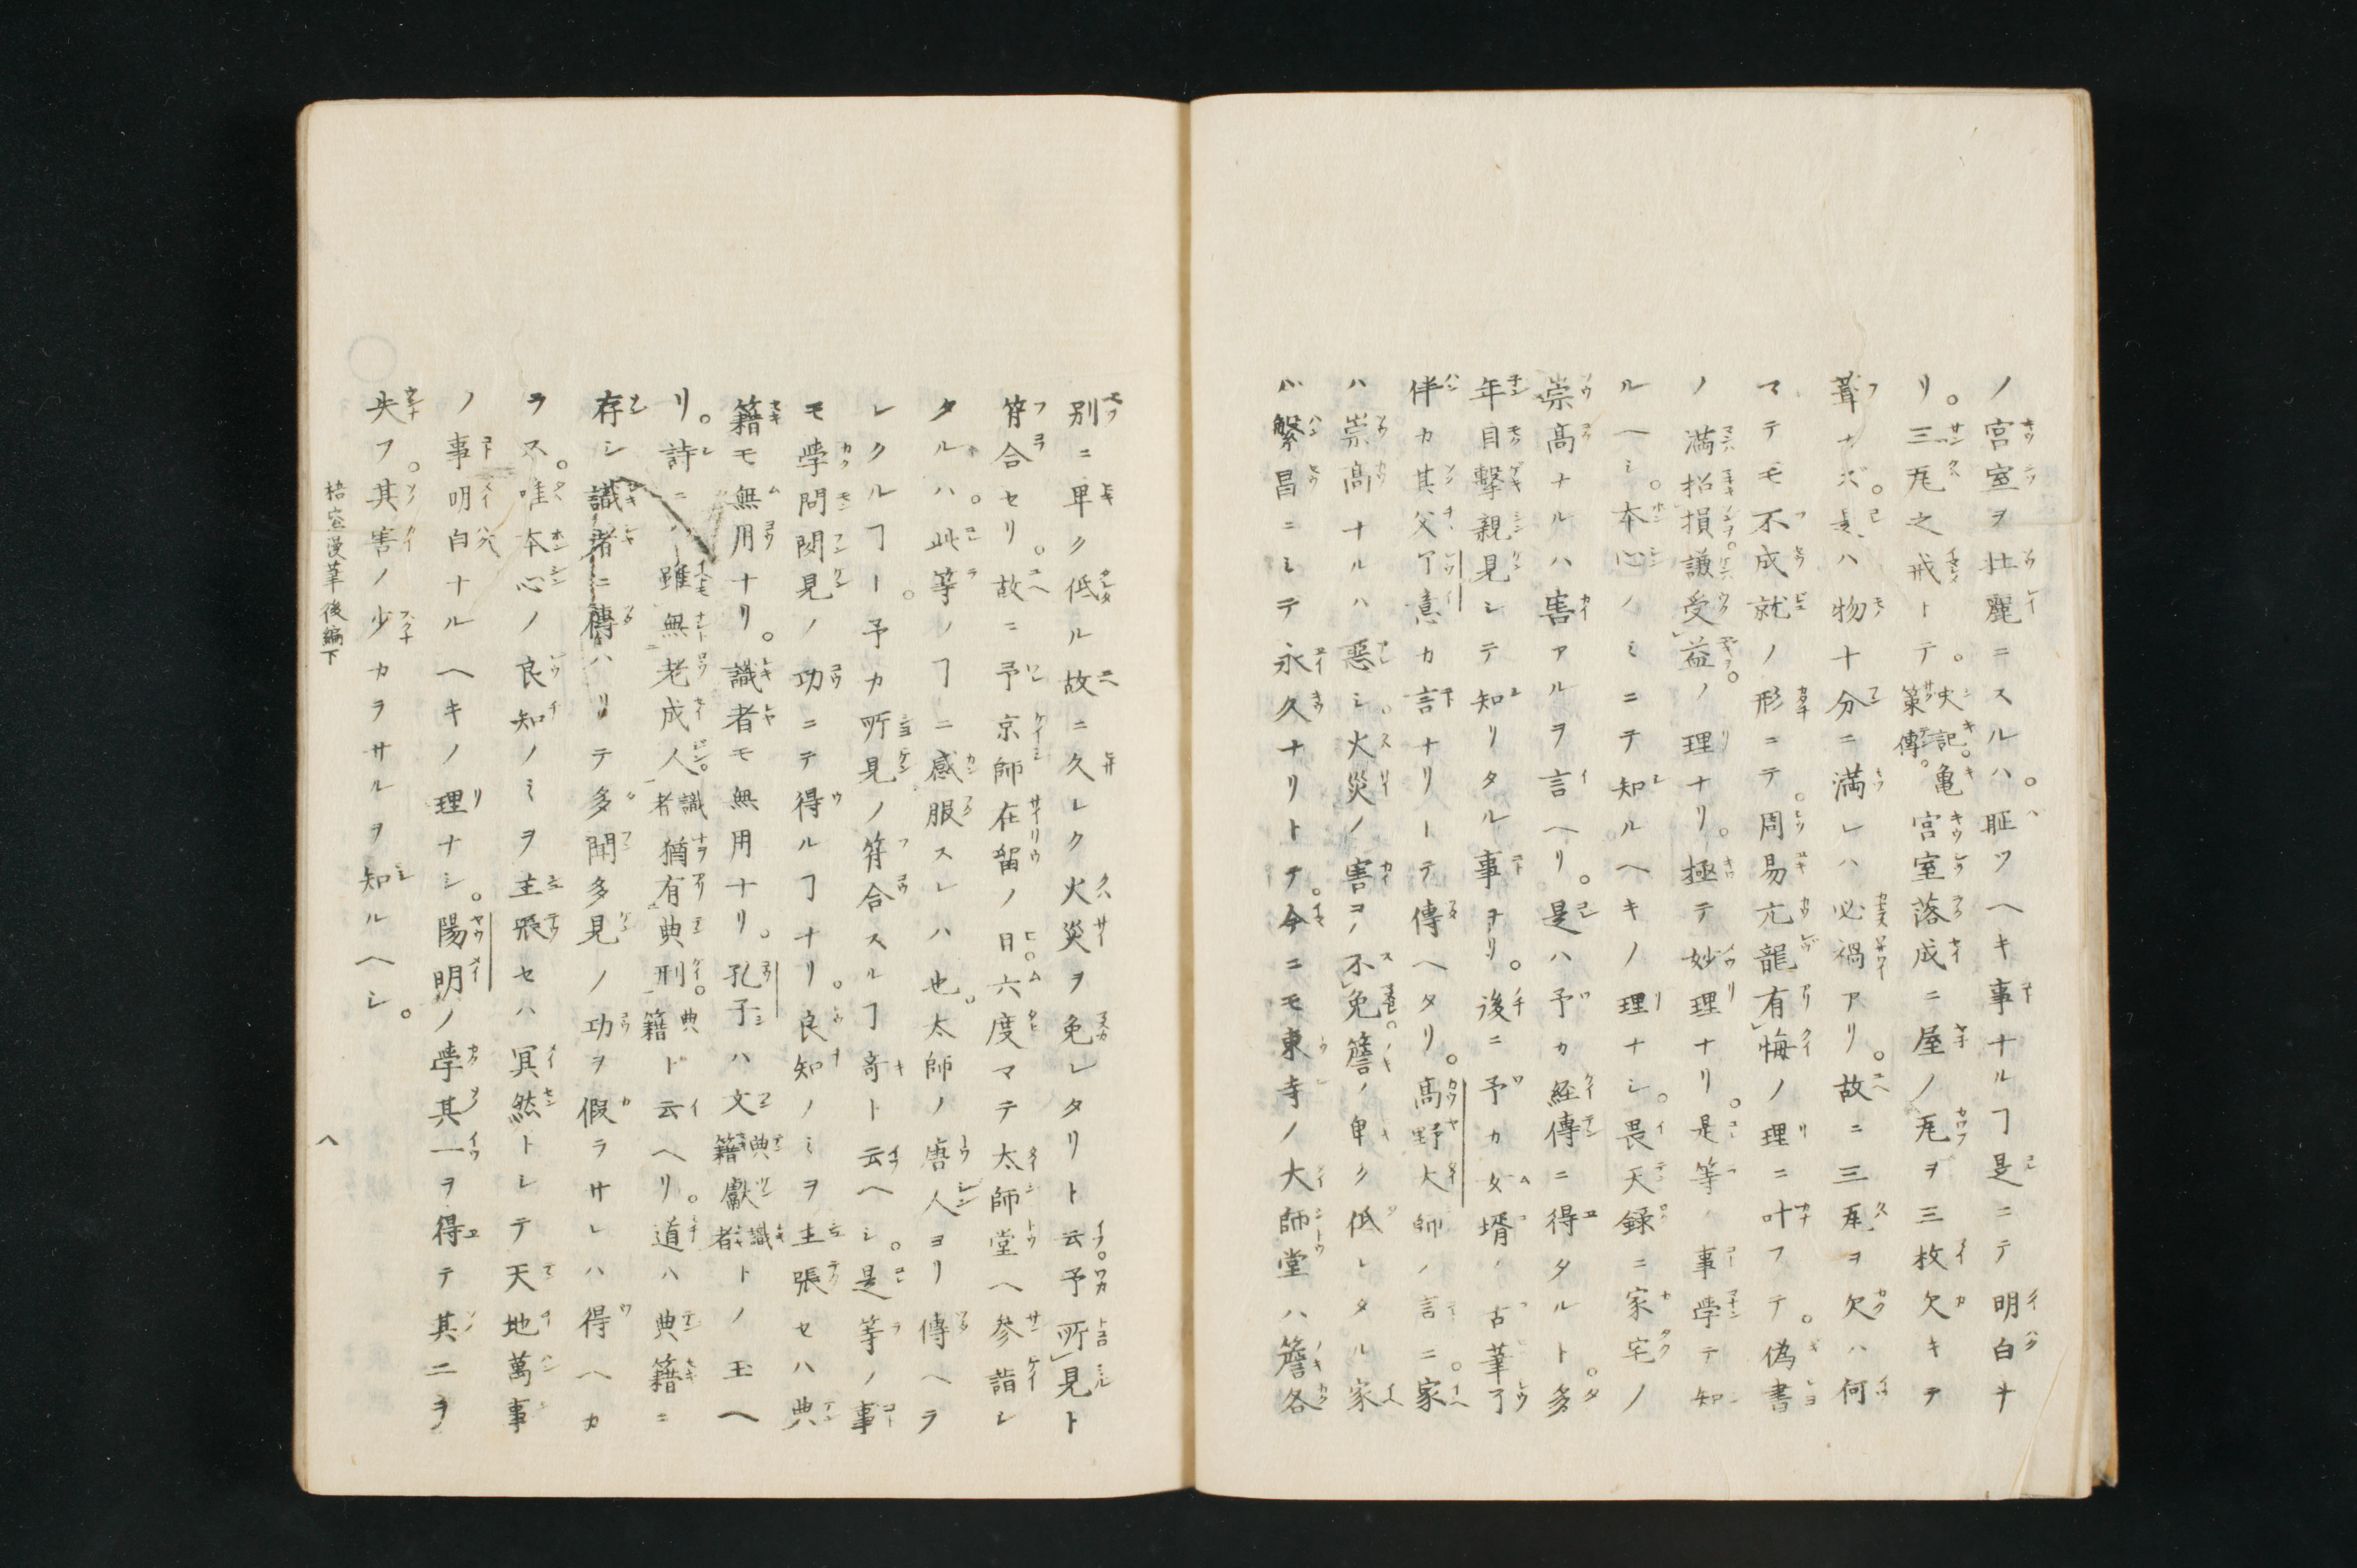 ノ宮室ヲ壮麗ニスルハ。耻ツヘキ事ナルヿ是ニテ明白ナ
リ。三瓦之戒トテ。史記。亀策傳。宮室落成ニ屋ノ瓦ヲ三枚欠キテ
葺ナズ。是ハ物十分ニ満レハ必禍アリ。故ニ三瓦ヲ欠ハ何
マテモ不成就ノ形ニテ。周易亢龍有悔ノ理ニ叶フテ。偽書
ノ満招損。謙受益。ノ理ナリ。極テ妙理ナリ。是等ノ事学テ知
ルヘシ。本心ノミニテ知ルヘキノ理ナシ。畏天録ニ家宅ノ
崇高ナルハ害アルヲ言ヘリ。是ハ予カ経傳ニ得タルト。多
年目擊親見シテ知リタル事ヲリ。後ニ予カ女壻ノ古筆了
伴カ其父了意カ言ナリトテ傳ヘタリ。高野大師ノ言ニ。家
ハ崇高ナルハ悪シ。火災ノ害ヲ不免。簷ノ卑ク低レタル家
ハ繁昌ニシテ永久ナリトテ。今ニモ東寺ノ大師堂ハ簷各
別ニ卑ク低ル故ニ久レク火災ヲ免レタリト云。予所見ト
符合セリ。故ニ予京師在留ノ日。六度マテ太師堂ヘ參詣レ
タルハ。此等ノヿニ感服スレハ也。太師ノ唐人ヨリ傳ヘラ
レクルヿー。予カ所見ノ符合スルヿ奇ト云ヘシ。是等ノ事
モ学問聞見ノ功ニテ得ルヿナリ。良知ノミヲ主張セハ典
籍モ無用ナリ。識者モ無用ナリ。孔子ハ文典籍獻識者トノ玉ヘ
リ。詩ニハ雖無老成人。識者猶有典刑。典籍ト云ヘリ。道ハ典籍ニ
存シ識者ニ傳ハリテ多聞多見ノ功ヲ假ラサレハ得ヘカ
ラス。唯本心ノ良知ノミヲ主張セハ冥然トレテ天地萬事
ノ事明白ナルヘキノ理ナシ。陽明ノ学其一ヲ得テ其二ヲ
失フ。其害ノ少カラサルヲ知ルヘシ。
梧窓漫筆後編下
八